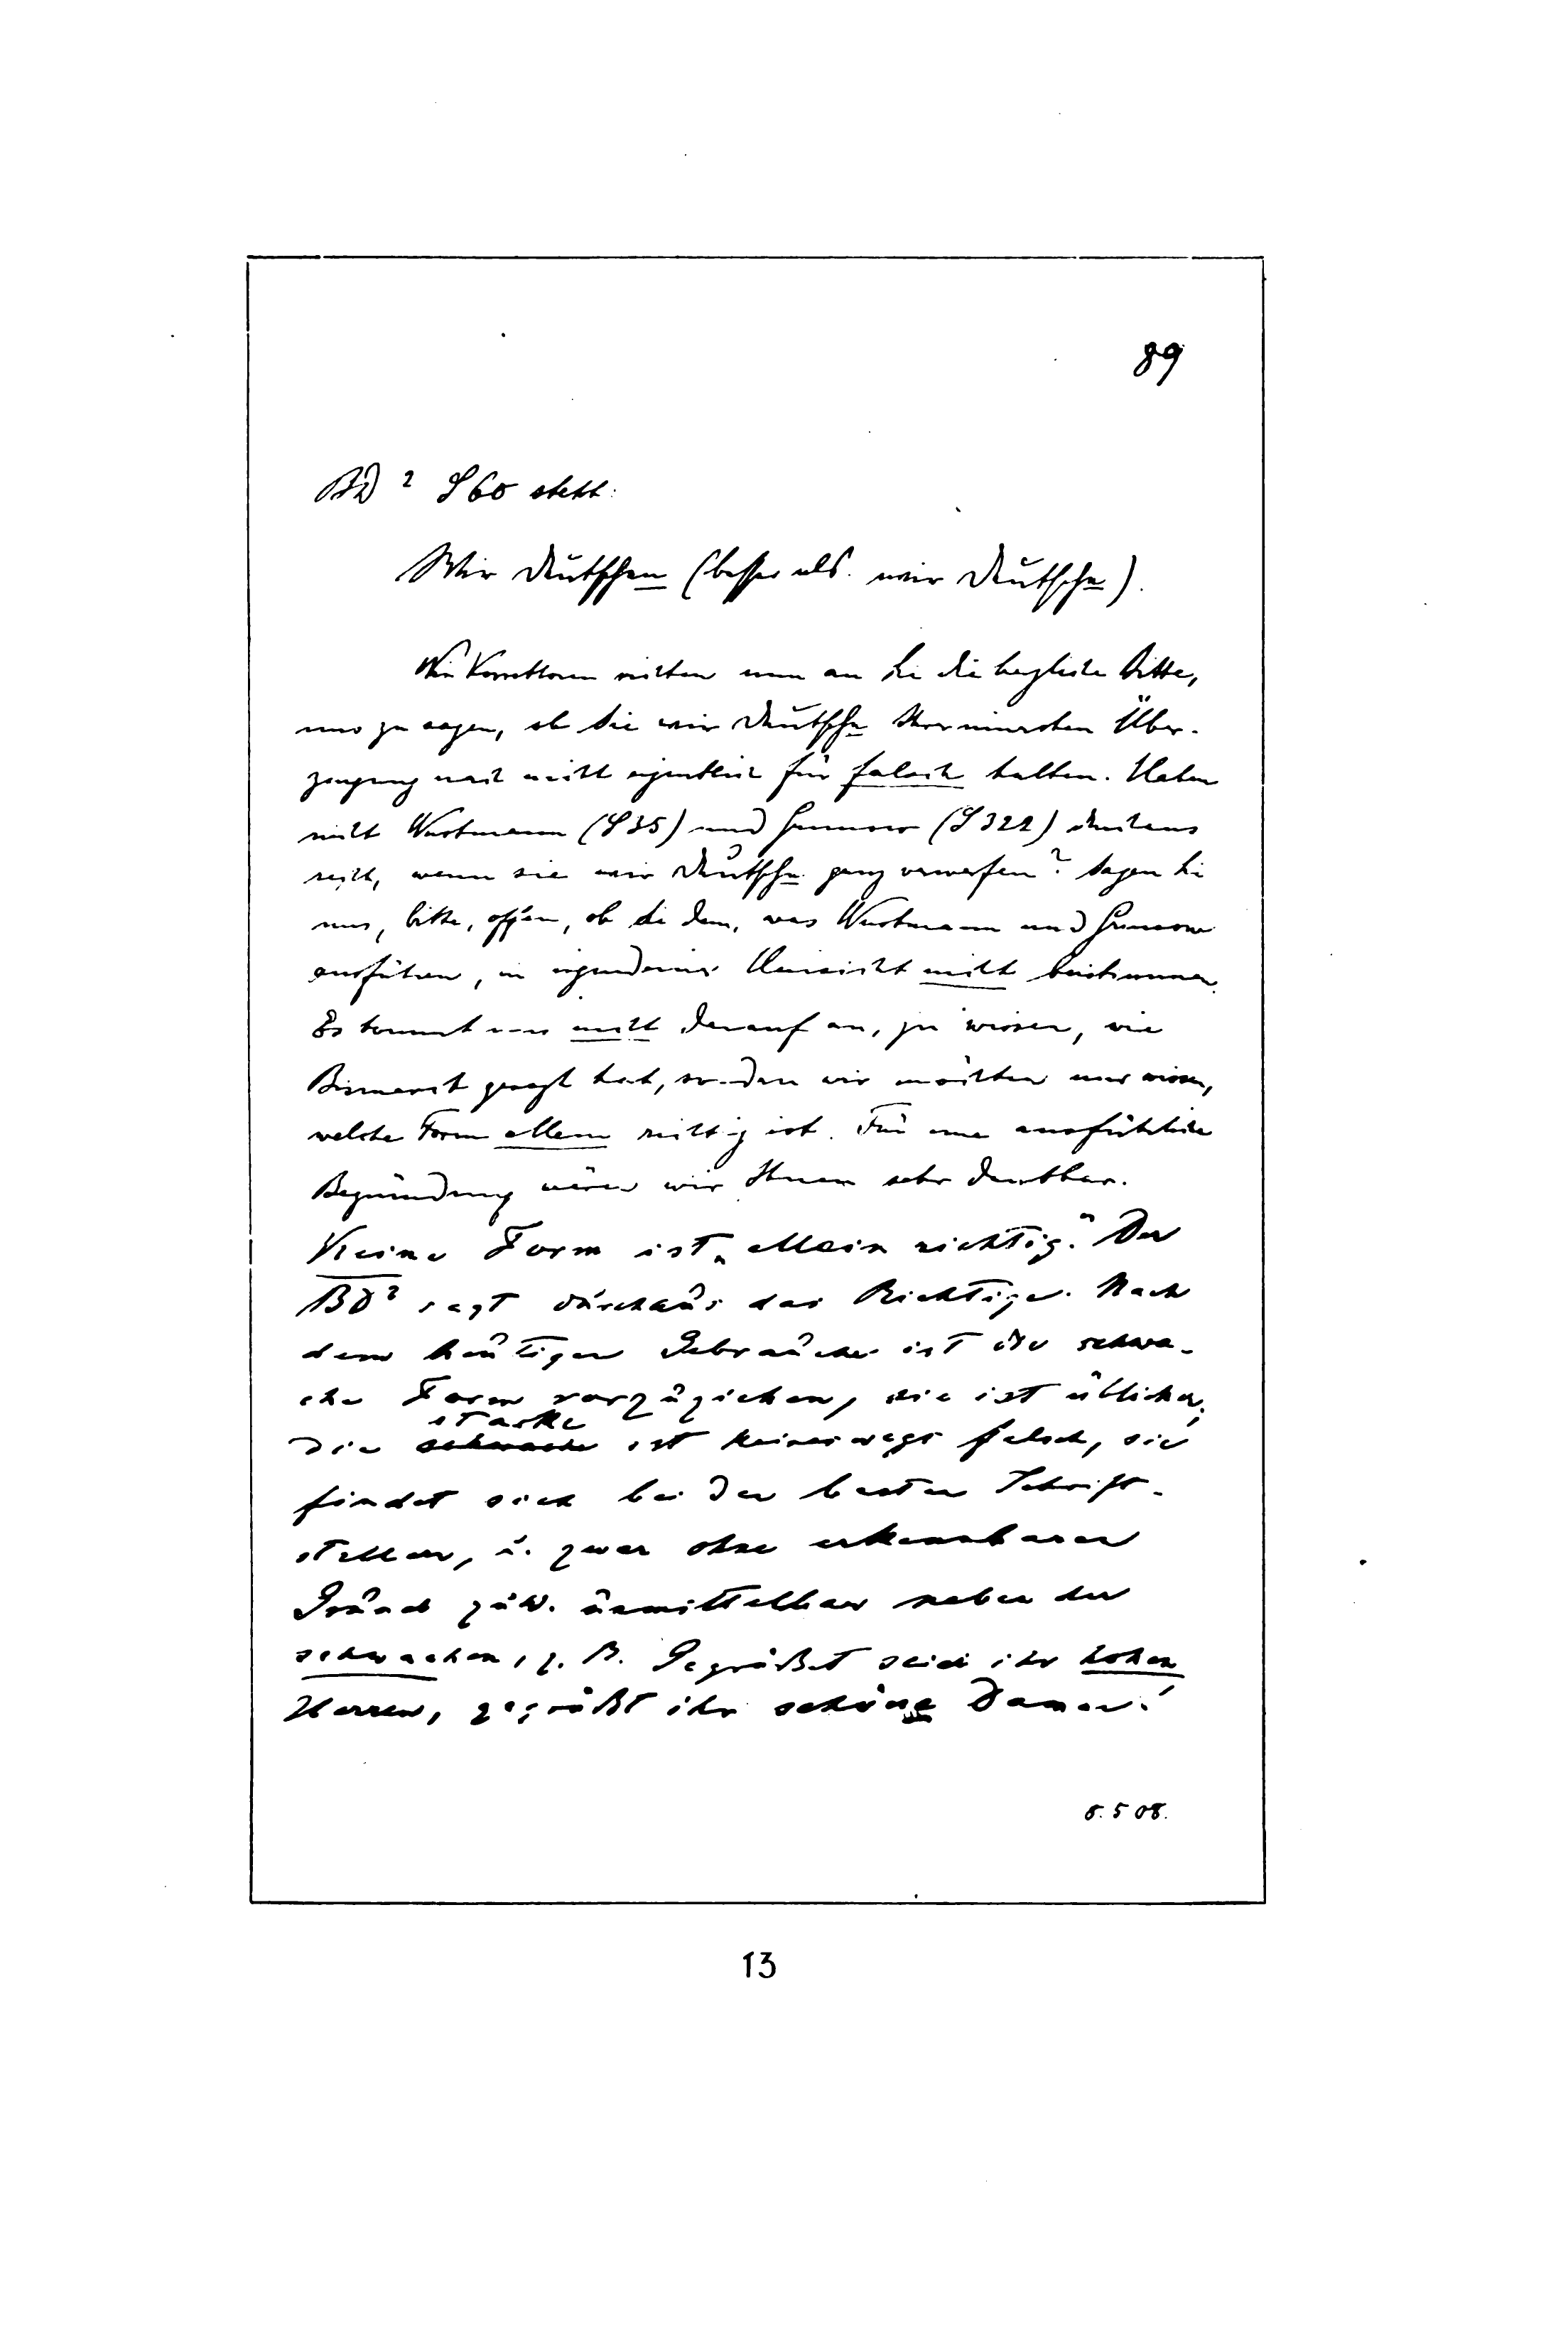 89
BD² S 60 steht:
Wir Deutschen (besser als: wir Deutsche).
Wir Korrektoren richten nun an Sie die herzliche Bitte,
uns zu sagen, ob Sie wir Deutsche Ihrer innersten Über-
zeugung nach nicht eigentlich für falsch halten. Haben
nicht Wustmann (S 35) und (S 322) durchaus
recht, wenn sie wir Deutsche ganz verwerfen? Sagen Sie
uns, bitte, offen, ob Sie dem, was Wustmann und
ausführen, in irgendeiner Hinsicht nicht beistimmen.
Es kommt uns nicht darauf an, zu wissen, wie
Bismarck gesagt hat, sondern wir möchten nur wissen,
welche Form allein richtig ist. Für eine ausführliche
Begründung wären wir Ihnen sehr dankbar.
Keine Form ist „allein richtig.“ Der
BD² sagt durchaus das Richtige. Nach
dem heutigen Gebrauche ist die schwa-
che Form vorzuziehen, sie ist üblicher;
starke
die schwache ist keineswegs falsch, sie
findet sich bei den besten Schrift-
stellern, u. zwar ohne erkennbaren
Grund zuw. unmittelbar neben der
schwachen, z. B. Gegrüßet seid ihr hohen
Herren, gegrüßt ihr schöne Damen!
6. 5 08.
13